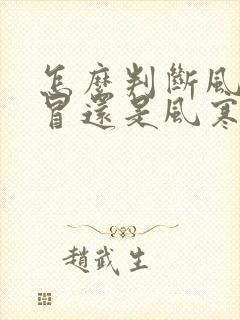 怎麼判斷風
冒還是風寒
趙武生